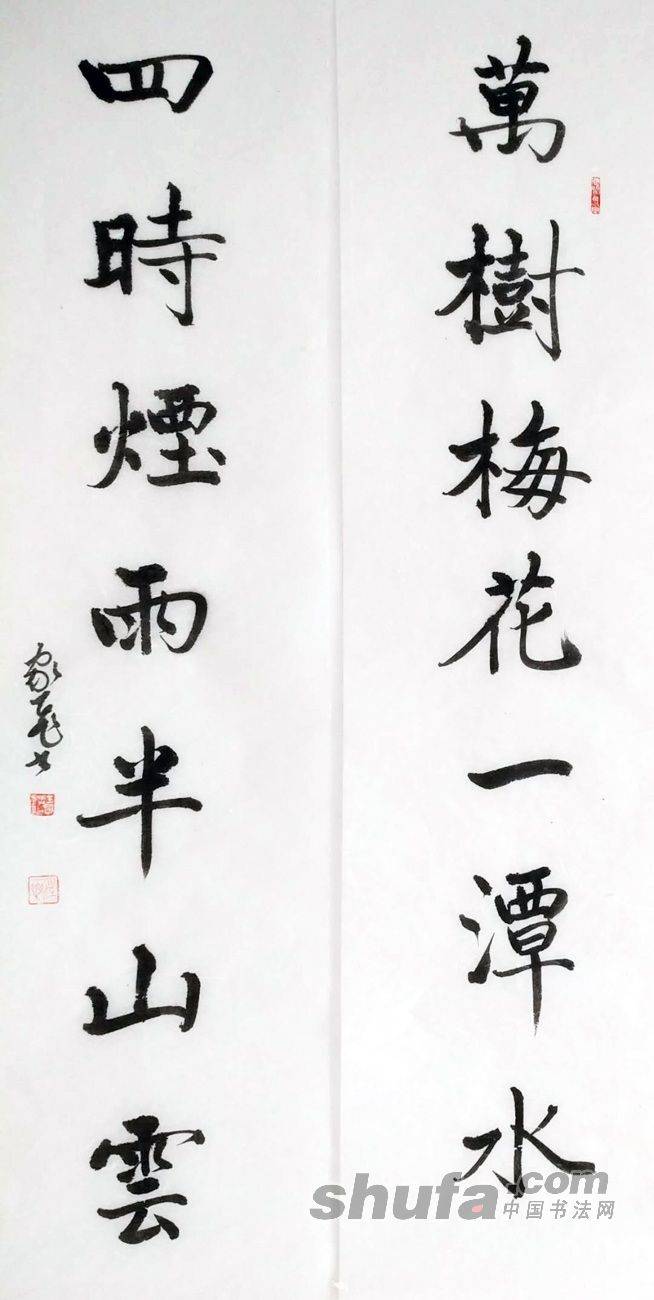 萬樹梅花一潭水
四時煙雨半山雲
shufa.com
中国书法网